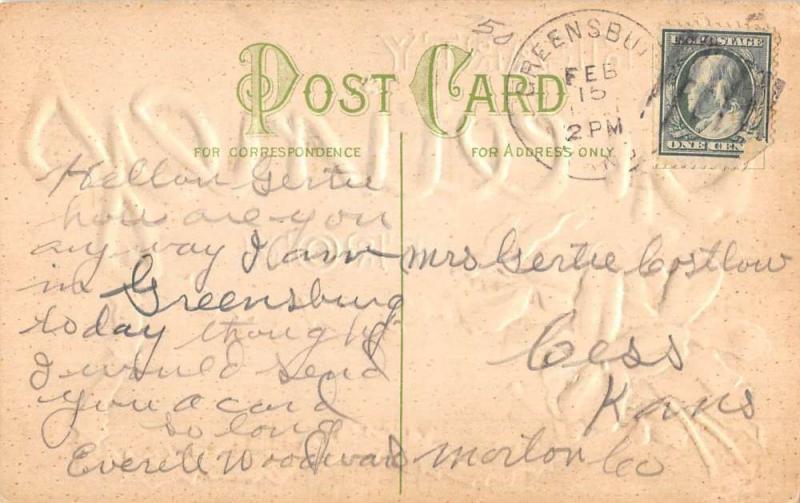 POST CARD
FOR CORRESPONDENCE
FOR ADDRESS ONLY
50
GREENSBU
FEB
15
2 PM
U.S. POSTAGE
ONE CENT
Hellow Gertie
how are you
any way I am
in Greensburg
today thought
I would send
you a card
so long
Everett Woodward
Mrs Gertie Costlow
Cess
Kans
Morton Co